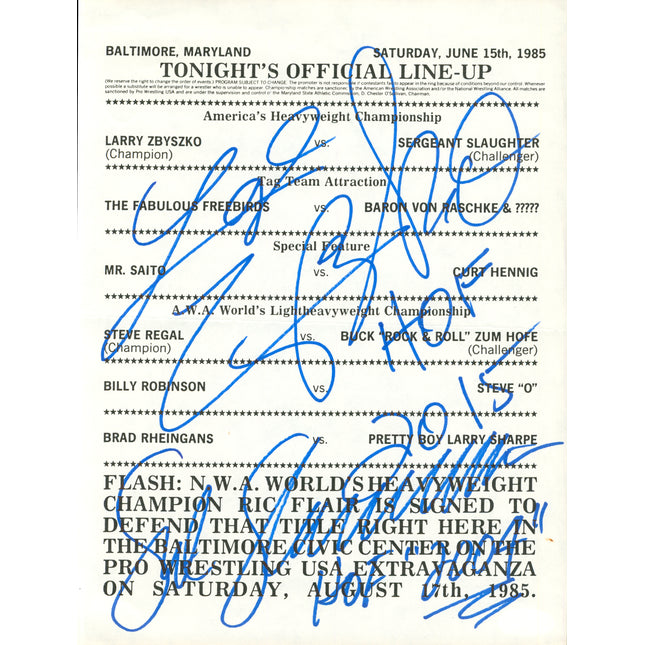 BALTIMORE, MARYLAND SATURDAY, JUNE 15th, 1985
TONIGHT'S OFFICIAL LINE-UP
(We reserve the right to change the order of events.) PROGRAM SUBJECT TO CHANGE. The promoter is not responsible if contestants fail to appear in the ring because of conditions beyond our control. Whenever
possible a substitute will be arranged for a wrestler who is unable to appear. Championship matches are sanctioned by the American Wrestling Association and/or the National Wrestling Alliance. All matches are
sanctioned by Pro Wrestling USA and are under the supervision and control of the Maryland State Athletic Commission, D. Chester O'Sullivan, Chairman.
America's Heavyweight Championship
LARRY ZBYSZKO vs. SERGEANT SLAUGHTER
(Champion) (Challenger)
Tag Team Attraction
THE FABULOUS FREEBIRDS vs. BARON VON RASCHKE & ?????
Special Feature
MR. SAITO vs. CURT HENNIG
A.W.A. World's Lightheavyweight Championship
STEVE REGAL vs. BUCK "ROCK & ROLL" ZUM HOFE
(Champion) (Challenger)
BILLY ROBINSON vs. STEVE "O"
BRAD RHEINGANS vs. PRETTY BOY LARRY SHARPE
FLASH: N.W.A. WORLD'S HEAVYWEIGHT
CHAMPION RIC FLAIR IS SIGNED TO
DEFEND THAT TITLE RIGHT HERE IN
THE BALTIMORE CIVIC CENTER ON THE
PRO WRESTLING USA EXTRAVAGANZA
ON SATURDAY, AUGUST 17th, 1985.
HOF
2015
HOF "2004"